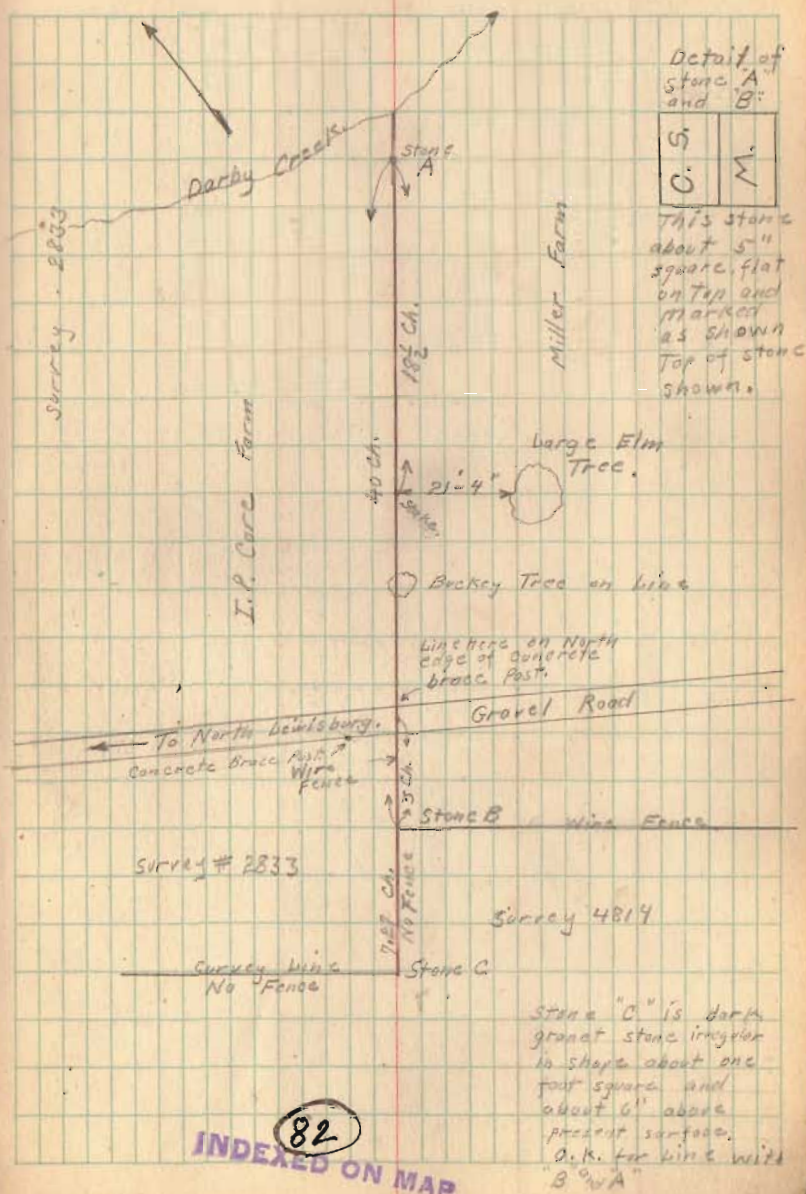 Detail of
stone "A"
and "B"
C. S.
M.
This stone
about 5"
square, flat
on Top and
marked
as shown
Top of stone
shown.
Darby Creek
Stone
A
Survey. 2833
Miller Farm
18½ Ch.
40 Ch.
I.P. Core Farm
Large Elm
Tree.
21'-4"
Stake.
Buckey Tree on Line
Line here on North
edge of Concrete
brace Post.
Gravel Road
To North Lewisburg.
Concrete Brace Post
Wire
Fence
5 Ch.
Stone B
Wire Fence
Survey # 2833
7.27 Ch.
No Fence
Survey 4814
Survey Line
No Fence
Stone C
Stone "C" is dark
granet stone irregular
in shape about one
foot square and
about 6" above
present surface.
O.K. for Line with
"B" and "A"
82
INDEXED ON MAP